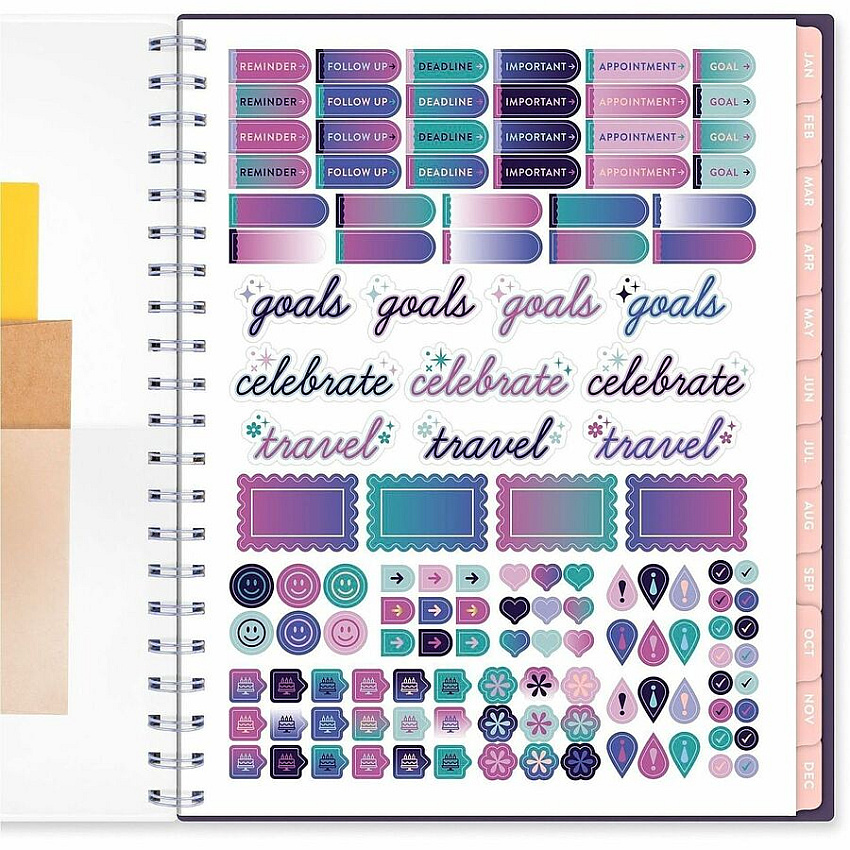 REMINDER→ FOLLOW UP→ DEADLINE→ IMPORTANT→ APPOINTMENT→ GOAL→
REMINDER→ FOLLOW UP→ DEADLINE→ IMPORTANT→ APPOINTMENT→ GOAL→
REMINDER→ FOLLOW UP→ DEADLINE→ IMPORTANT→ APPOINTMENT→ GOAL→
REMINDER→ FOLLOW UP→ DEADLINE→ IMPORTANT→ APPOINTMENT→ GOAL→
goals goals goals goals
celebrate celebrate celebrate
travel travel travel
JAN
FEB
MAR
APR
MAY
JUN
JUL
AUG
SEP
OCT
NOV
DEC